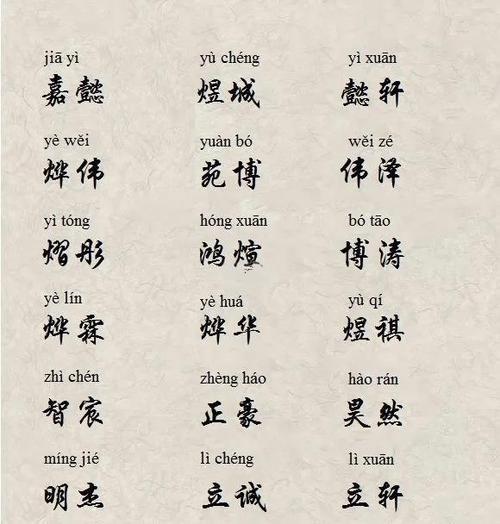 jiā yì yù chéng yì xuān
嘉懿 煜城 懿轩
yè wěi yuàn bó wěi zé
烨伟 苑博 伟泽
yì tóng hóng xuān bó tāo
熠彤 鸿煊 博涛
yè lín yè huá yù qí
烨霖 烨华 煜祺
zhì chén zhèng háo hào rán
智宸 正豪 昊然
míng jié lì chéng lì xuān
明杰 立诚 立轩